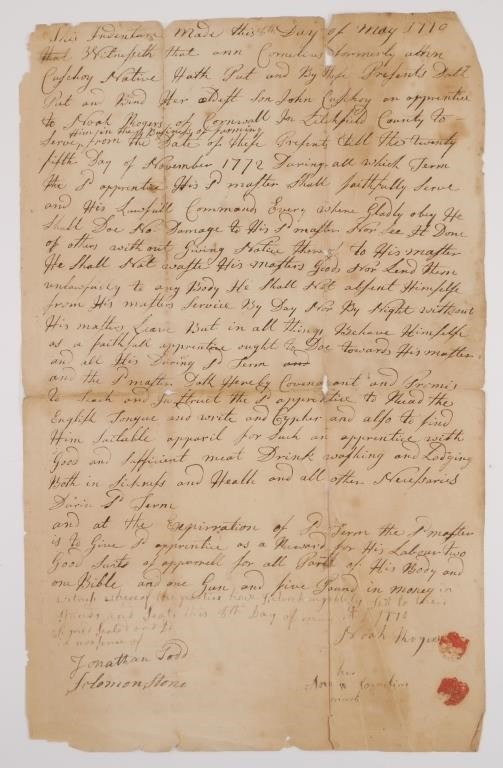 This Indenture Made this 8th Day of May 1770
that Witnesseth that ann Cornelius formerly
Cuschoy Native Hath Put and By these Presents Doth
Put an Bind Her Son John Cuschoy an apprentice
to Noah Rogers of Cornwall In Litchfield County to
Him in the Business of farming
Serve from the Date of these Presents till the twenty
fifth Day of November 1772 During all which Term
the Sd apprentice His Sd master Shall faithfully Serve
and His Lawfull Command Every where Gladly obey He
Shall Doe No Damage to His Sd master Nor See It Done
of others without Giving Notice thereof to His master
He Shall Not waste His masters Goods Nor Lend them
unlawfully to any Body He Shall Not absent Himselfe
from His masters Service By Day Nor By Night without
His masters Leave But in all things Behave Himselfe
as a faithfull apprentice ought to Doe towards His master
and all His During Sd Term
and the Sd master Doth Hereby Covenant and Promis
to Teach and Instruct the Sd apprentice to Read the
English Tongue and write and Cypher and also to find
Him Suitable apparil for Such an apprentice with
Good and Sufficient meat Drink washing and Lodging
Both in Sickness and Health and all other Necessaries
Durin Sd Term
and at the Expirration of Sd Term the Sd master
is to Give Sd apprentice as a Reward for His Labour two
Good Suits of apparell for all Parts of His Body and
one Bible and one Gun and five Pound in money in
witness whereof the parties have
Hands and Seals this 8th Day of may 1770
Signed Sealed and
in presence of
Noah Rogers
Jonathan Todd
Solomon Stone
her
Ann x Cornelius
mark